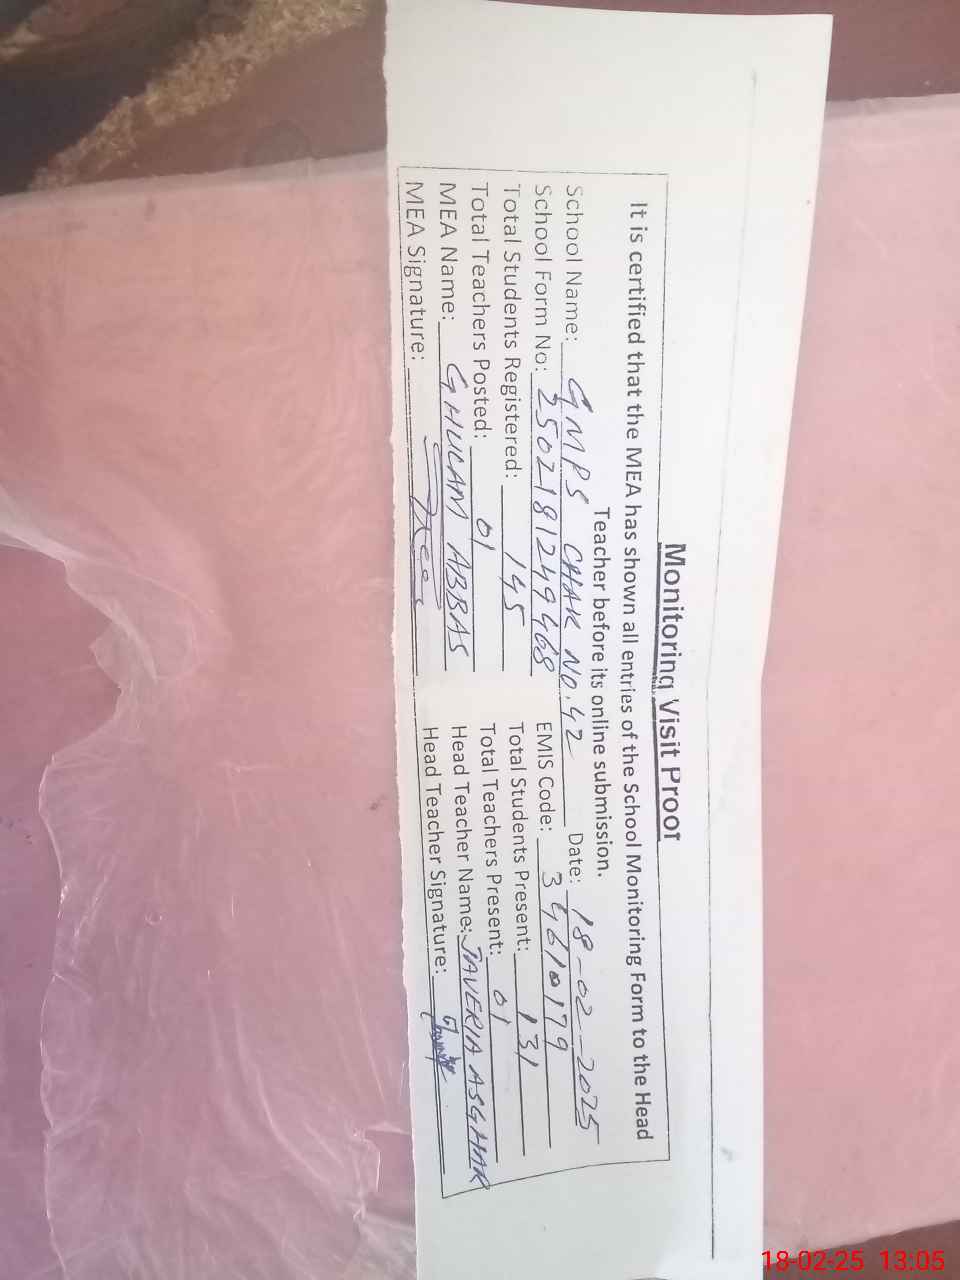 Monitoring Visit Proof
It is certified that the MEA has shown all entries of the School Monitoring Form to the Head
Teacher before its online submission.
School Name: GMPS CHAK NO.42 Date: 18-02-2025
School Form No: 25021812499468 EMIS Code: 34610179
Total Students Registered: 145 Total Students Present: 131
Total Teachers Posted: 01 Total Teachers Present: 01
MEA Name: GHULAM ABBAS Head Teacher Name: JAVERIA ASGHAR
MEA Signature: Head Teacher Signature:
18-02-25 13:05